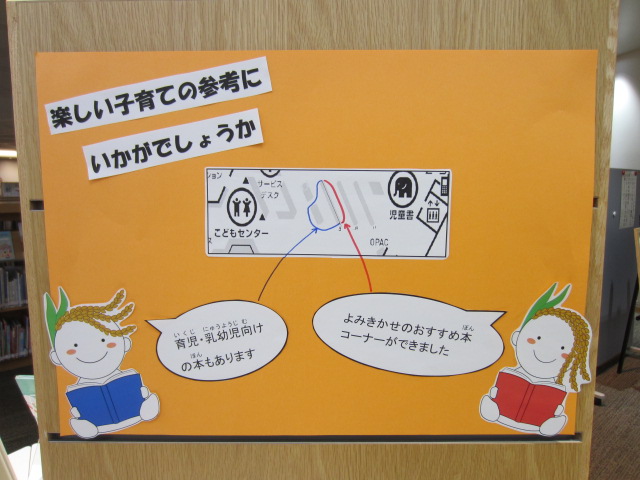 楽しい子育ての参考に
いかがでしょうか
ション
サービス
デスク
こどもセンター
児童書
OPAC
育児・乳幼児向け
の本もあります
よみきかせのおすすめ本
コーナーができました